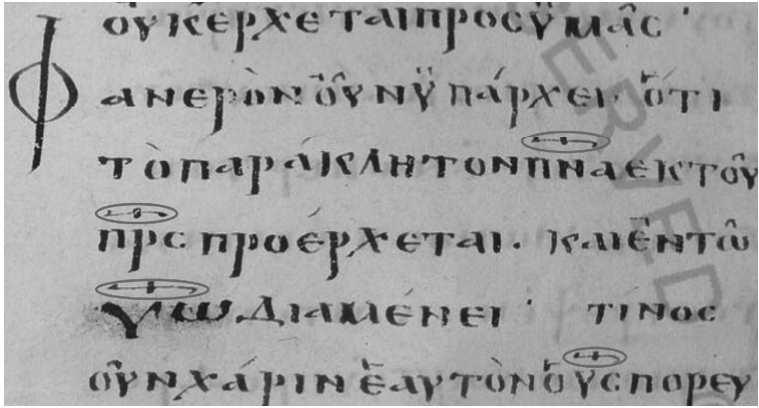 ΟΥΚ ἘΡΧΕΤΑΙ ΠΡΟϹ ΫΜΑ͂Ϲ ·
ΦΑΝΕΡῸΝ ΟΥ̓͂Ν ΫΠΆΡΧΕΙ · Ὅ́ΤΙ
ΤῸ ΠΑΡΆΚΛΗΤΟΝ Π̅Ν̅Α̅ ΕΚ ΤΟΥ͂
Π̅Ρ̅Ϲ̅ ΠΡΟΈΡΧΕΤΑΙ · ΚΑΙ ἘΝ ΤΩ͂
Υ̅Ω̅ ΔΙΑΜΈΝΕΙ · ΤΊΝΟϹ
ΟΥ̓͂Ν ΧΆΡΙΝ ἙΑΥΤῸΝ Ὁ Υ̅Ϲ̅ ΠΟΡΕΥ
ERVED